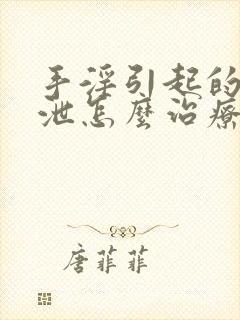 手淫引起的
泄怎麼治療
唐菲菲